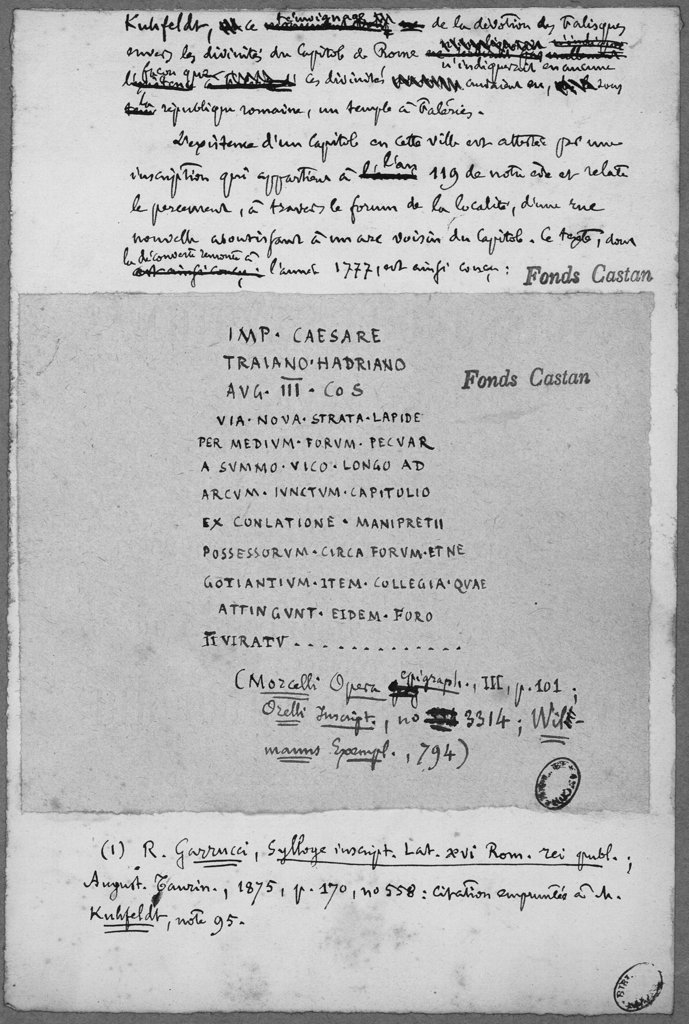 Kuhfeldt, ce témoignage de la dévotion des Falisques
envers les divinités du Capitole de Rome
n'indiquerait en aucune
façon que ces divinités auraient eu, sous
la république romaine, un temple à Faléries.
L'existence d'un Capitole en cette ville est attestée par une
inscription qui appartient à l'an 119 de notre ère et relate
le percement, à travers le forum de la localité, d'une rue
nouvelle aboutissant à un arc voisin du Capitole. Ce texte, dont
la découverte remonte à
l'année 1777, est ainsi conçu :
Fonds Castan
IMP · CAESARE
TRAIANO · HADRIANO
AVG · III · COS
Fonds Castan
VIA · NOVA · STRATA · LAPIDE
PER MEDIVM · FORVM · PECVAR
A SVMMO · VICO · LONGO AD
ARCVM · IVNCTVM · CAPITOLIO
EX CONLATIONE · MANIPRETII
POSSESSORVM · CIRCA FORVM · ET NE
GOTIANTIVM · ITEM · COLLEGIA · QVAE
ATTINGVNT · EIDEM · FORO
II VIRATV . . . . . . . . . . . . .
(Morcelli Opera epigraph., III, p. 101 ;
Orelli Inscript., no 3314 ; Wil-
manns Exempl., 794)
(1) R. Garrucci, Sylloge inscript. Lat. ævi Rom. rei publ. ;
August. Taurin., 1875, p. 170, no 558 : citation empruntée à M.
Kuhfeldt, note 95.